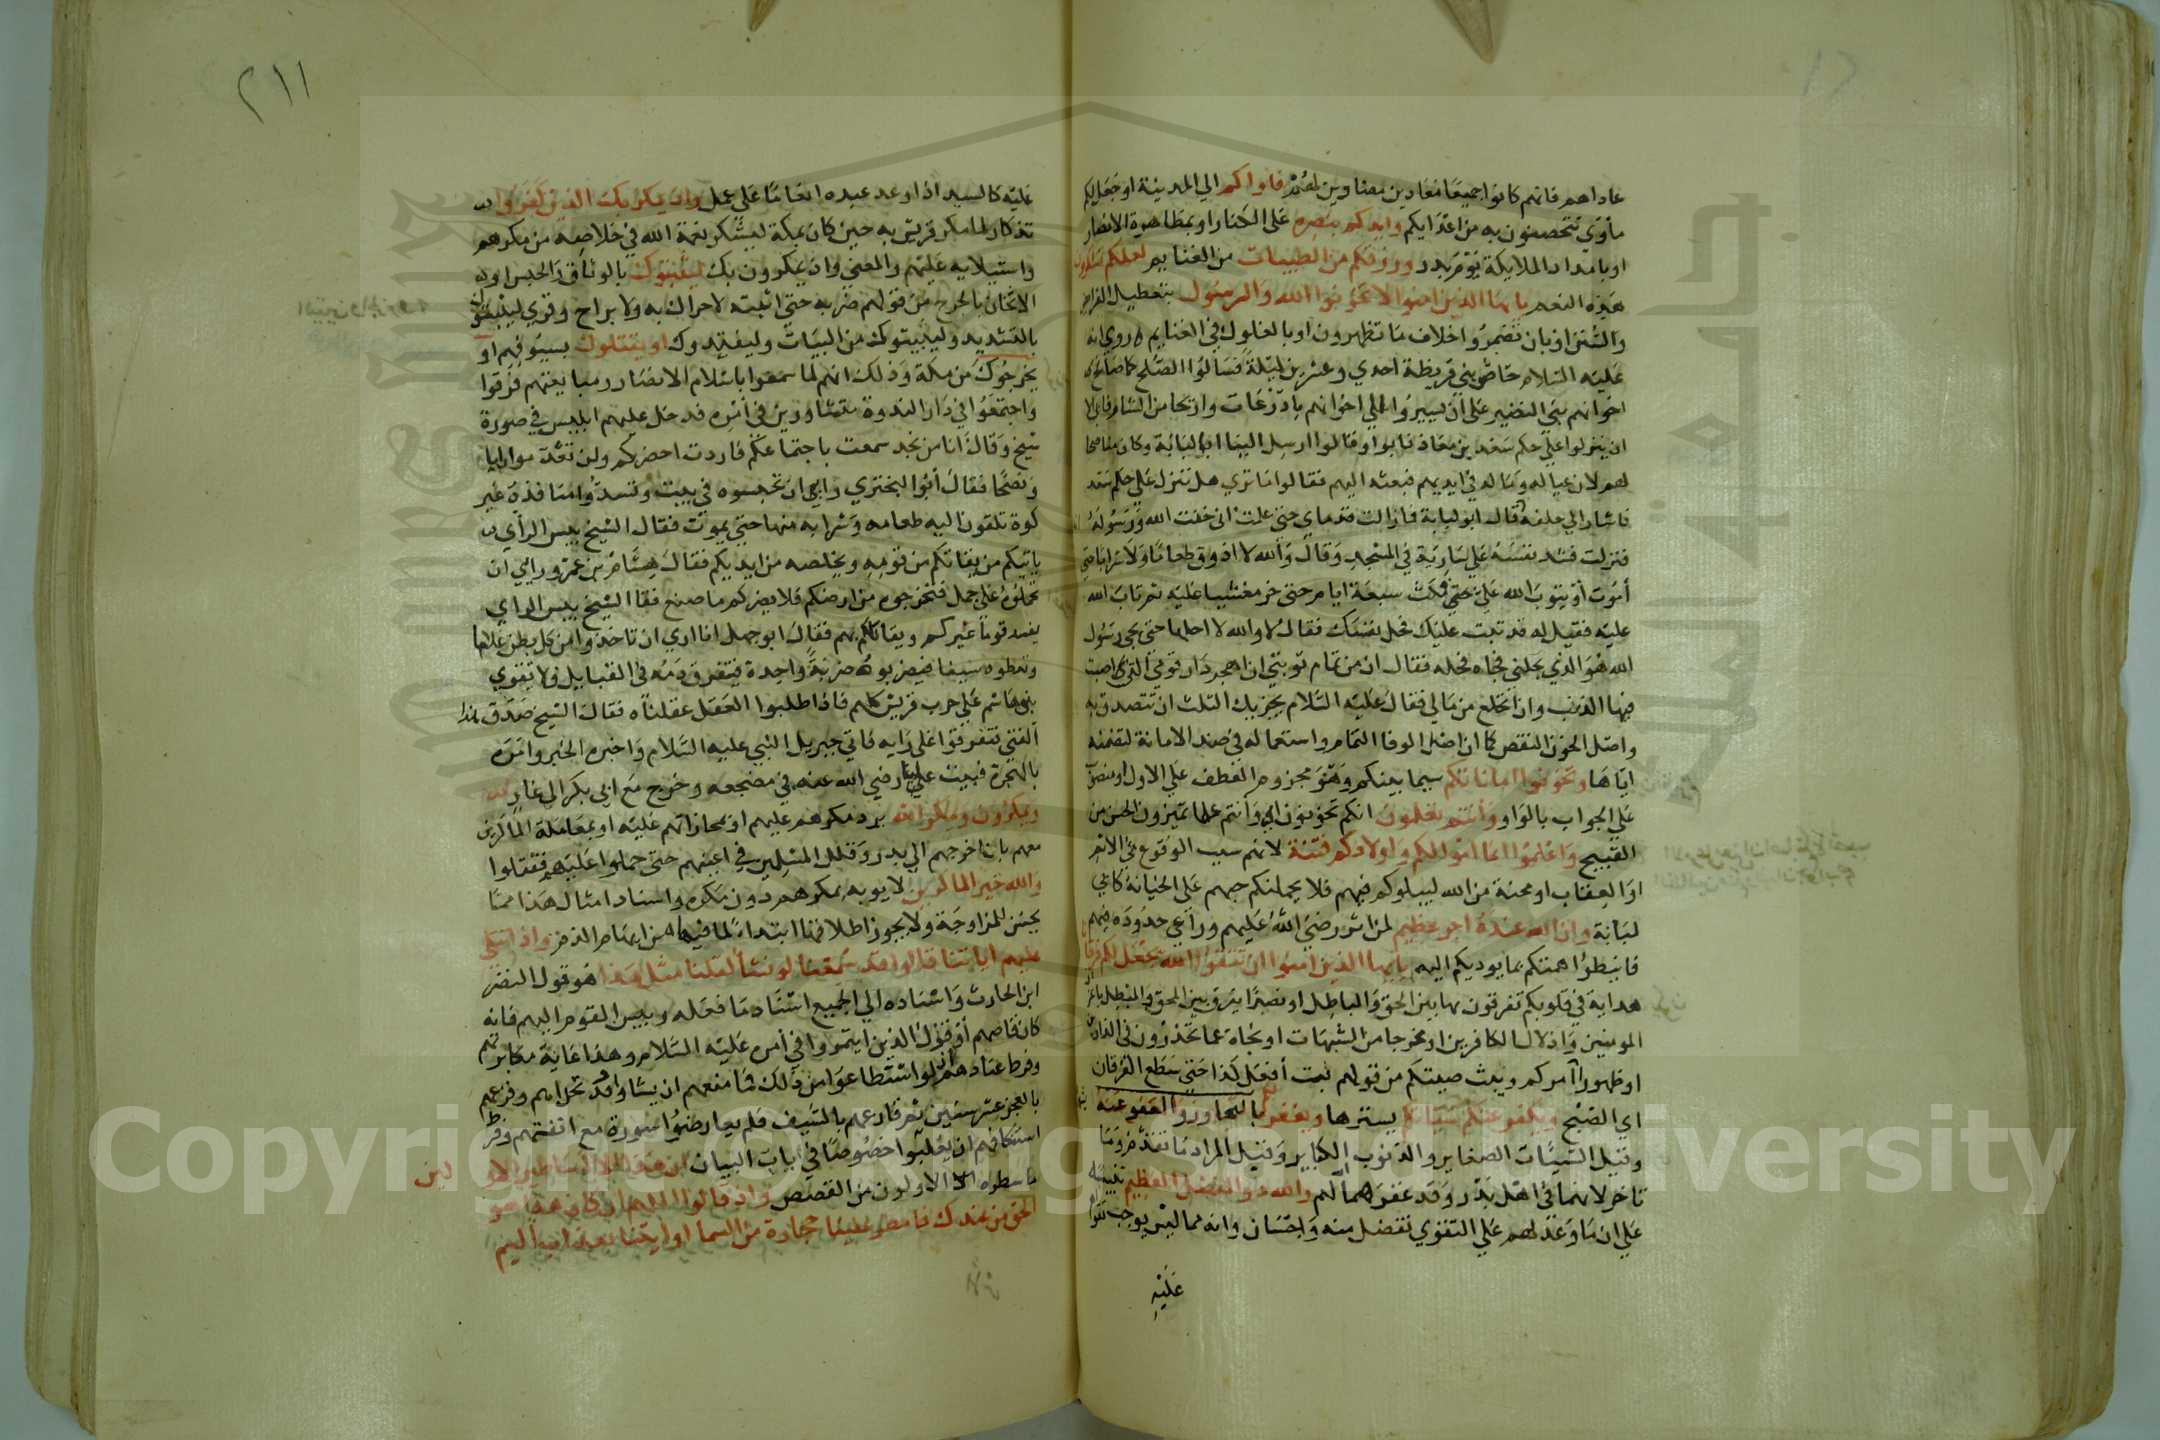 عاداهم فانهم كانوا جميعا معادين مضادين لهم فاواكم الي المدينة او جعل لكم
مأوى تتحصنون به من اعدايكم وايدكم بنصره على الكفار او بمظاهرة الانصار
او بامداد الملايكة يوم بدر ورزقكم من الطيبات من الغنايم لعلكم تشكرون
هذه النعم يا ايها الذين امنوا لا تخونوا الله والرسول بتعطيل الفرايض
والسنن او بان تضمروا خلاف ما تظهرون او بالغلول في الغنايم روي انه
عليه السلام حاصر بني قريظة احدي وعشرين ليلة فسالوا الصلح كما صالح
اخوانهم بني النضير على ان يسيروا الي اخوانهم باذرعات واريحا من الشام فابي الا
ان ينزلوا علي حكم سعد بن معاذ فابوا وقالوا ارسل الينا ابا لبابة وكان مناصحا
لهم لان عياله وماله في ايديهم فبعثه اليهم فقالوا ما تري هل ننزل علي حكم سعد
فاشار الي حلقه قال ابو لبابة فما زالت قدماي حتى علمت انى خنت الله ورسوله
فنزلت فشد نفسه علي سارية في المسجد وقال والله لا اذوق طعاما ولا شرابا حتي
أموت أو يتوب الله علي فمكث سبعة ايام حتى خر مغشيا عليه ثم تاب الله
عليه فقيل له قد تيب عليك فحل نفسك فقال لا والله لا احلها حتى يجي رسول
الله هو الذي يحلني فجاه فحله فقال ان من تمام توبتي ان اهجر دار قومي التي اصبت
فيها الذنب وان انخلع من مالي فقال عليه السلام يجزيك الثلث ان تتصدق به
واصل الخون النقص كما ان اصل الوفا التمام واستعماله في ضد الامانة لتضمنه
اياها وتخونوا اماناتكم فيما بينكم وهو مجزوم بالعطف علي الاول او منصوب
علي الجواب بالواو وأنتم تعلمون انكم تخونون او وانتم علما تميزون الحسن من
القبيح واعلموا انما اموالكم واولادكم فتنة لانهم سبب الوقوع في الاثم
او العقاب او محنة من الله ليبلوكم فيهم فلا يحملنكم حبهم على الخيانة كابي
لبابة وان الله عنده اجر عظيم لمن اثر رضي الله عليهم وراعي حدوده فيهم
فانيطوا هممكم بما يوديكم اليه يا ايها الذين آمنوا ان تتقوا الله يجعل لكم فرقانا
هداية في قلوبكم تفرقون بها بين الحق والباطل او نصرا يفرق بين المحق والمبطل باعزاز
المومنين واذلال الكافرين او مخرجا من الشبهات او نجاة عما تحذرون في الدارين
او ظهورا آمركم ويبث صيتكم من قولهم بت أفعل كذا حتى سطع الفرقان
اي الصبح ويكفر عنكم سيئاتكم يسترها ويغفر لكم بالتجاوز والعفو عنه
وقيل السيئات الصغاير والذنوب الكباير وقيل المراد ما تقدم وما
تاخر لانهما في اهل بدر وقد غفرهما الله لهم والله ذو الفضل العظيم تنبيه
علي ان ما وعد لهم علي التقوي تفضل منه واحسان وانه مما ليس يوجب تقواهم
عليه
٢١١
عليه كالسيد اذا وعد عبده انعاما على عمل واذ يمكر بك الذين كفروا
تذكار لما مكر قريش به حين كان بمكة ليشكر نعمة الله في خلاصه من مكرهم
واستيلايه عليهم والمعني واذ يمكرون بك ليثبتوك بالوثاق والحبس او
الاثخان بالجرح من قولهم ضربه حتى اثبته لا حراك به ولا براح وقري ليثبتوك
بالتشديد وليبيتوك من البيات وليقيدوك او يقتلوك بسيوفهم او
يخرجوك من مكة وذلك انهم لما سمعوا باسلام الانصار ومبايعتهم فرقوا
واجتمعوا في دار الندوة متشاورين في أمره فدخل عليهم ابليس في صورة
شيخ وقال انا من نجد سمعت باجتماعكم فاردت احضركم ولن تعدموا رايا
ونصحا فقال أبو البختري رايي ان تحبسوه في بيت وتسدوا منافذه غير
كوة تلقون اليه طعامه وشرابه منها حتى يموت فقال الشيخ بيس الرأي
ياتيكم من يقاتلكم من قومه ويخلصه من ايديكم فقال هشام بن عمرو رايي ان
تحملوه على جمل فتخرجوه من ارضكم فلا يضركم ما صنع فقال الشيخ بيس الراي
يفسد قوما غيركم ويقاتلكم بهم فقال ابو جهل انا اري ان تاخذوا من كل بطن غلاما
وتعطوه سيفا فيضربوه ضربة واحدة فيتفرق دمه في القبايل فلا يقوي
بنو هاشم علي حرب قريش كلهم فاذا طلبوا العقل عقلناه فقال الشيخ صدق هذا
الفتي فتفرقوا على رايه فاتي جبريل النبي عليه السلام واخبره الخبر وامره
بالهجرة فبيت عليا رضي الله عنه في مضجعه وخرج مع ابي بكر الي غار
ويمكرون ويمكر الله برد مكرهم عليهم او بمجازاتهم عليه او بمعاملة الماكرين
معهم بان اخرجهم الي بدر وقلل المسلمين في اعينهم حتى حملوا عليهم فقتلوا
والله خير الماكرين لا يوبه بمكرهم دون مكره واسناد امثال هذا مما
يحسن للمزاوجة ولا يجوز اطلاقها ابتداء لما فيها من ايهام الذم واذا تتلى
عليهم اياتنا قالوا قد سمعنا لو نشأ لقلنا مثل هذا هو قول النضر
ابن الحارث واسناده الي الجميع اسناد ما فعله رييس القوم اليهم فانه
كان قاصهم او قول الذين ايتمروا في أمره عليه السلام وهذا غاية مكابرتهم
وفرط عنادهم لو استطاعوا من ذلك فما منعهم ان يشاوا وقد تحداهم وقرعهم
بالعجز عشر سنين ثم قارعهم بالسيف فلم يعارضوا سورة مع انفتهم وفرط
استنكافهم ان يغلبوا خصوصا في باب البيان ان هذا الا اساطير الاولين
ما سطره الاولون من القصص واذ قالوا اللهم ان كان هذا هو
الحق من عندك فامطر علينا حجارة من السما او ايتنا بعذاب اليم